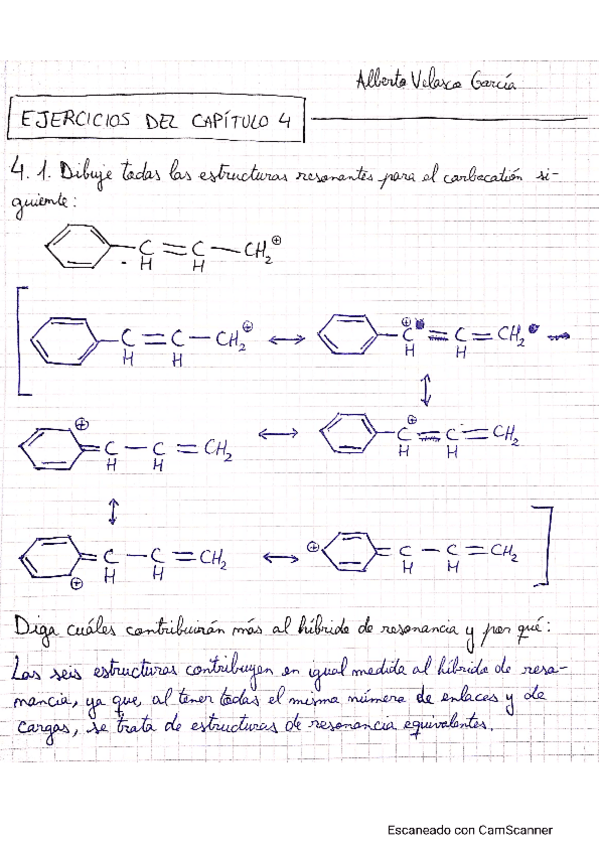 Alberto Velasco García
EJERCICIOS DEL CAPÍTULO 4
4.1. Dibuje todas las estructuras resonantes para el carbocatión si-
guiente:
C = C — CH2 ⊕
H H
C = C — CH2 ⊕ ↔ ⊕ C = C = CH2
H H H H
⊕ = C — C = CH2 ↔ ⊕ C = C = CH2
H H H H
= C — C = CH2 ↔ ⊕ = C — C = CH2
⊕ H H H H
Diga cuáles contribuirán más al híbrido de resonancia y por qué:
Las seis estructuras contribuyen en igual medida al híbrido de reso-
nancia, ya que, al tener todas el mismo número de enlaces y de
cargas, se trata de estructuras de resonancia equivalentes.
Escaneado con CamScanner